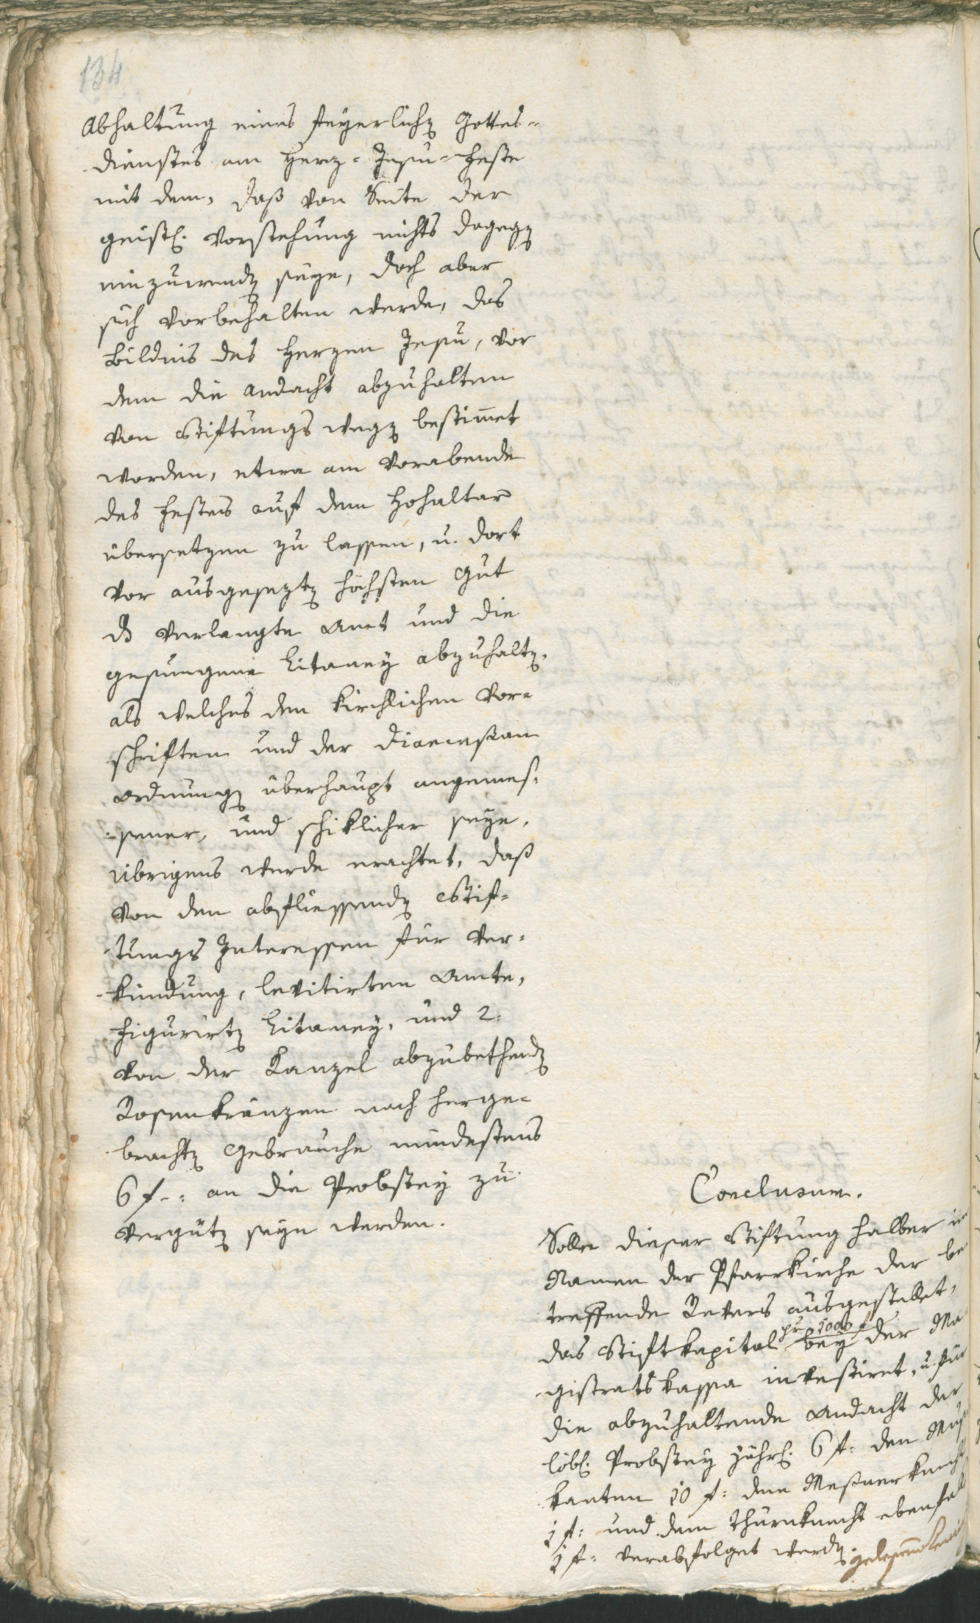 134
Abhaltung eines feyerlichen Gottes-
dienstes am Herz-Jesu-Feste
mit dem, daß von Seite der
geistl. Vorstehung nichts dagegen
einzuwenden seye, doch aber
sich vorbehalten werde, das
Bildnis des Herzen Jesu, vor
dem die Andacht abzuhalten
von Stiftungs wegen bestimet
worden, etwa am Vorabende
des Festes auf dem Hohaltar
übersetzen zu lassen, u. dort
vor ausgesezten höchsten Gut
ds verlangte Amt und die
gesungene Litaney abzuhalten.
als welches den kirchlichen Vor-
schriften und der Dioecesan
Ordnung überhaupt angemes-
sener, und schiklicher seye,
übrigens werde erachtet, daß
von den abfliessenden Stif-
tungs Interessen für Ver-
kündung, levitirten Amte,
figurirten Litaney, und 2.
von der Kanzel abzubethenden
Rosenkränzen nach herge-
brachten Gebrauche mindestens
6 f-: an die Probstey zu
vergüten seyn werden.
Conclusum.
Solle dieser Stiftung halber im
Namen der Pfarrkirche der be
treffende Revers ausgestellet,
das Stiftkapital pr 1000 f bey der Ma
gistratskassa investiret, u. für
die abzuhaltende Andacht der
löbl. Probstey jährl. 6 f: den Musi
kanten 10 f: dem Meßnerknecht
1 f: und dem Thurnknecht ebenfals
1 f: verabfolget werden.